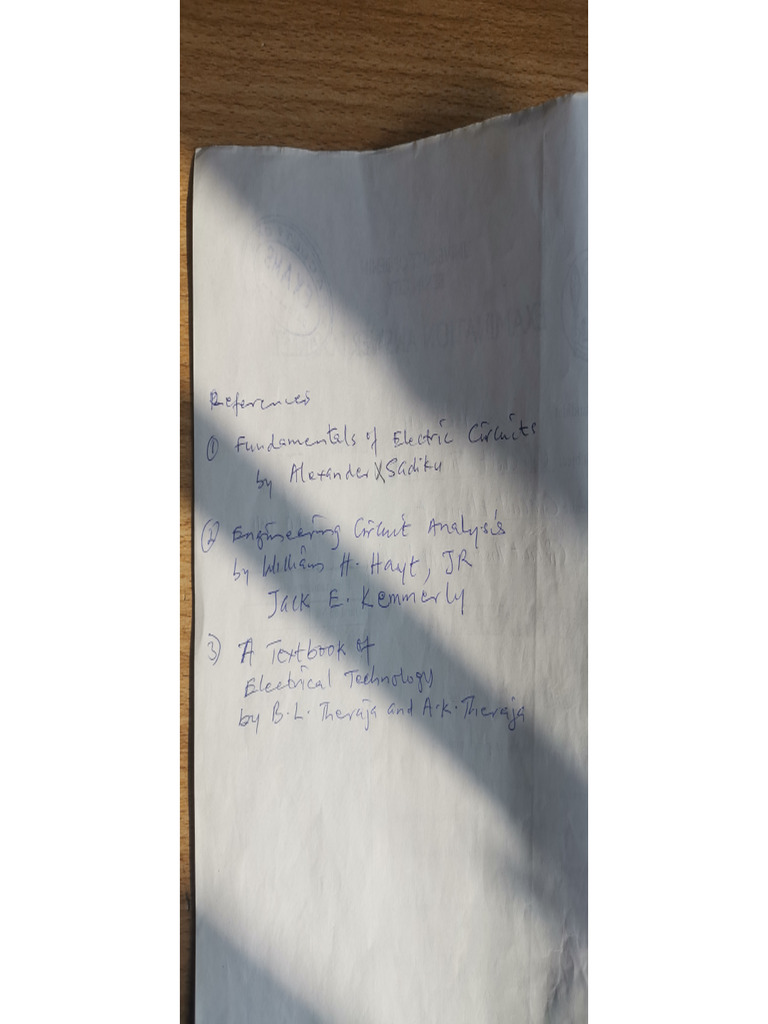 References
① Fundamentals of Electric Circuits
by Alexander & Sadiku
② Engineering Circuit Analysis
by William H. Hayt, JR
Jack E. Kemmerly
③ A Textbook of
Electrical Technology
by B.L. Theraja and A.K. Theraja